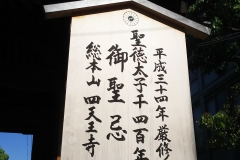 平成三十四年厳修
聖徳太子千四百年
御聖忌
総本山 四天王寺